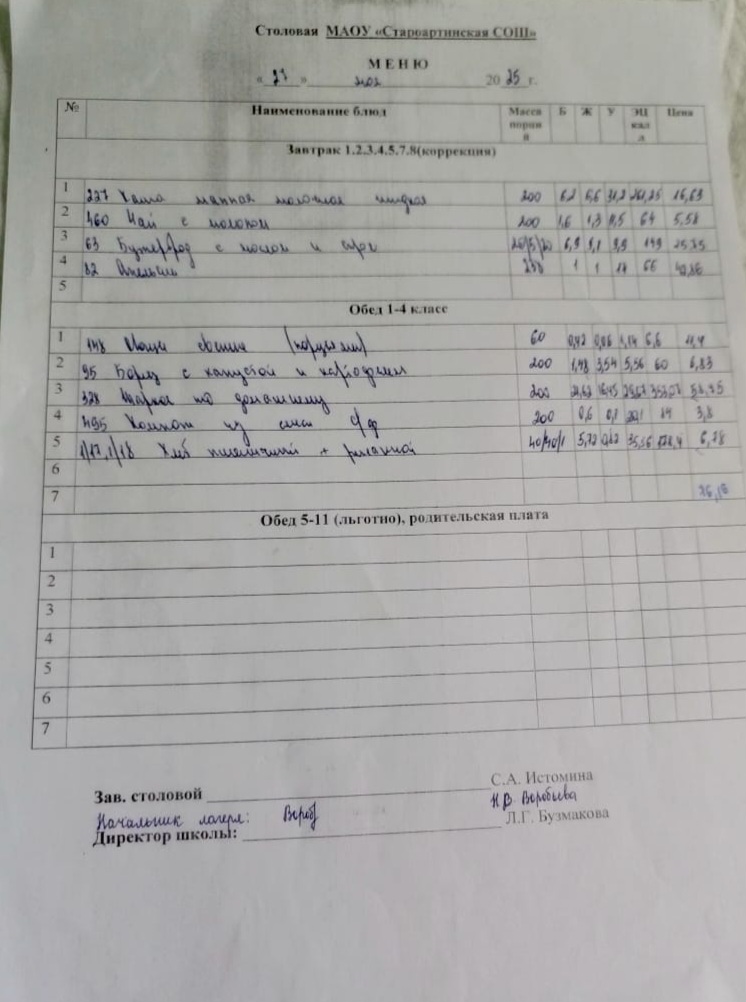 Столовая МАОУ «Староартинская СОШ»
МЕНЮ
« » 20 25 г.
№ Наименование блюд Масса порции Б Ж У ЭЦ ккал Цена
Завтрак 1.2.3.4.5.7.8(коррекция)
1 227 Каша манная молочная жидкая 200 6,2 31,2 261,25 16,63
2 460 Чай с молоком 200 1,6 1,3 64 5,58
3 63 Бутерброд с маслом и сыр 6,9 9,9
4 82 Апельсин 1 1 17 66
5
Обед 1-4 класс
1 148 Овощи свежие 60 0,42 0,06 1,14 6,6 11,4
2 95 Борщ с капустой и картофелем 200 1,48 3,54 5,56 60 6,83
3 328 Жаркое по домашнему 200
4 495 Компот из смеси с/ф 200 0,6 0,1 3,8
5 1/17,1/18 Хлеб пшеничный + ржаной 5,72 6,28
6
7 26,16
Обед 5-11 (льготно), родительская плата
1
2
3
4
5
6
7
Зав. столовой С.А. Истомина
Начальник лагеря: Вороб Н.В. Воробьева
Директор школы: Л.Г. Бузмакова